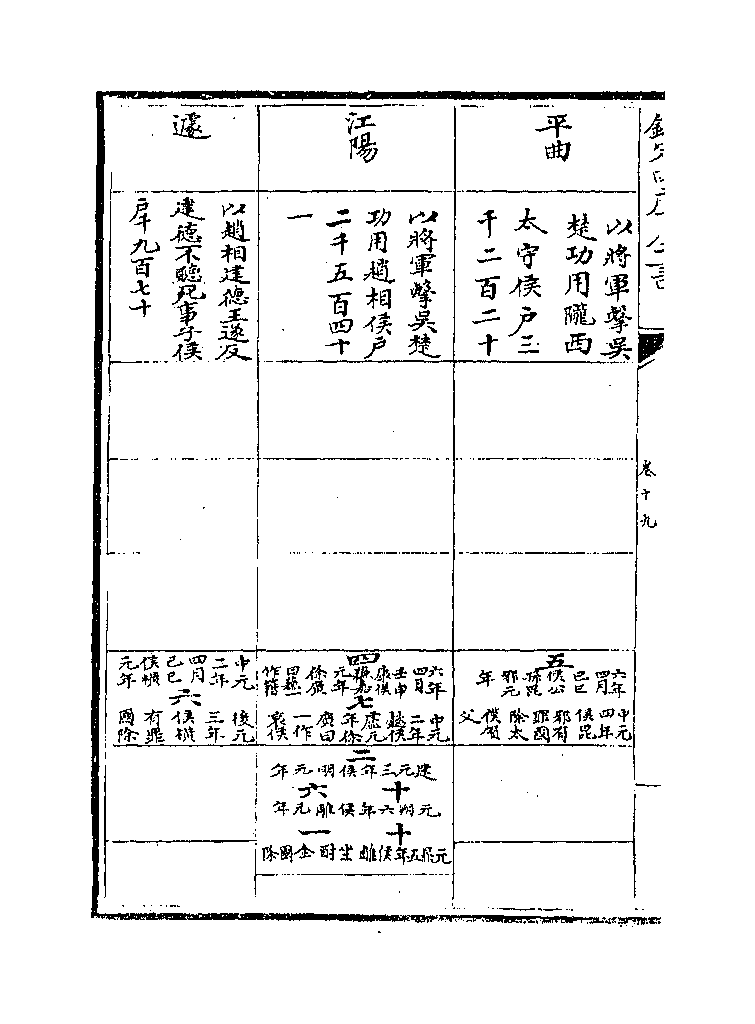 欽定四庫全書
卷十九
平曲
以將軍擊吳
楚功用隴西
太守侯戶三
千二百二十
五
六年
四月
己巳
侯公
孫昆
邪元
年
中元
四年
侯昆
邪有
罪國
除太
僕賀
父
江陽
以將軍擊吳楚
功用趙相侯戶
二千五百四十
一
四
六年
四月
壬申
康侯
蘇嘉
元年
徐廣
曰蘇一
作籍
七
中元
二年
懿侯
盧元
年徐
廣曰
一作
哀侯
二
建元三年侯明元年
十六
元朔六年侯雕元年
十一
元鼎五年侯雕坐酎金國除
遽
以趙相建德王遂反
建德不聽死事子侯
戶千九百七十
六
中元
二年
四月
己巳
侯橫
元年
後元
三年
侯橫
有罪
國除